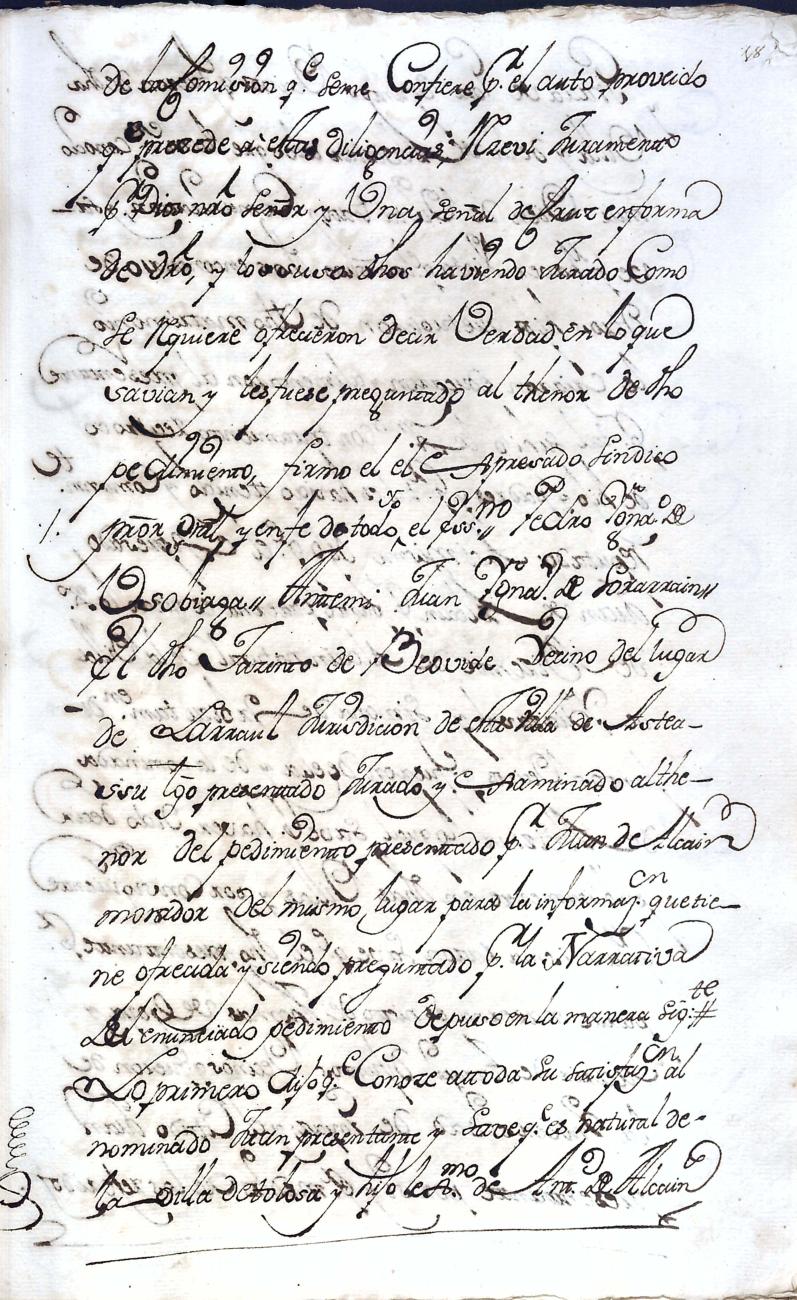 18
de la Comision q.e seme Confiere p.r el auto proveido
q.e presede a estas diligencias; Rrevi Juramento
p.r Dios nrô Señor y Una señal de Cruz en forma
de drô, y los suso dhos haviendo Jurado Como
se Rquiere ofrecieron decir Verdad en lo que
savian y les fuese preguntado al thenor de dho
pedimiento, firmo el el Expresado Sindico
1. prôr Gral y enfe de todo, el ess.no Pedro Ygna.o de
Osobiaga,, Antemi Juan Ygna.o de Sorarrain,,
El dho Jacinto de Beovide Vecino del lugar
de Larraul Jurisdicion de esta Villa de Astea-
ssu tgô presentado Jurado y Examinado al the-
nor del pedimiento presentado p.r Juan de Alcain
morador del mismo lugar para la informaz.cn que tie-
ne ofrecida y siendo preguntado p.r la Narrativa
del enunciado pedimiento depuso en la manera sig.te #
Lo primero dijo q.e Conoze atoda su satisfaz.cn al
nominado Juan presentante y save q.e es natural de-
la villa de tolosa y hijo lex.mo de Ant.o de Alcain